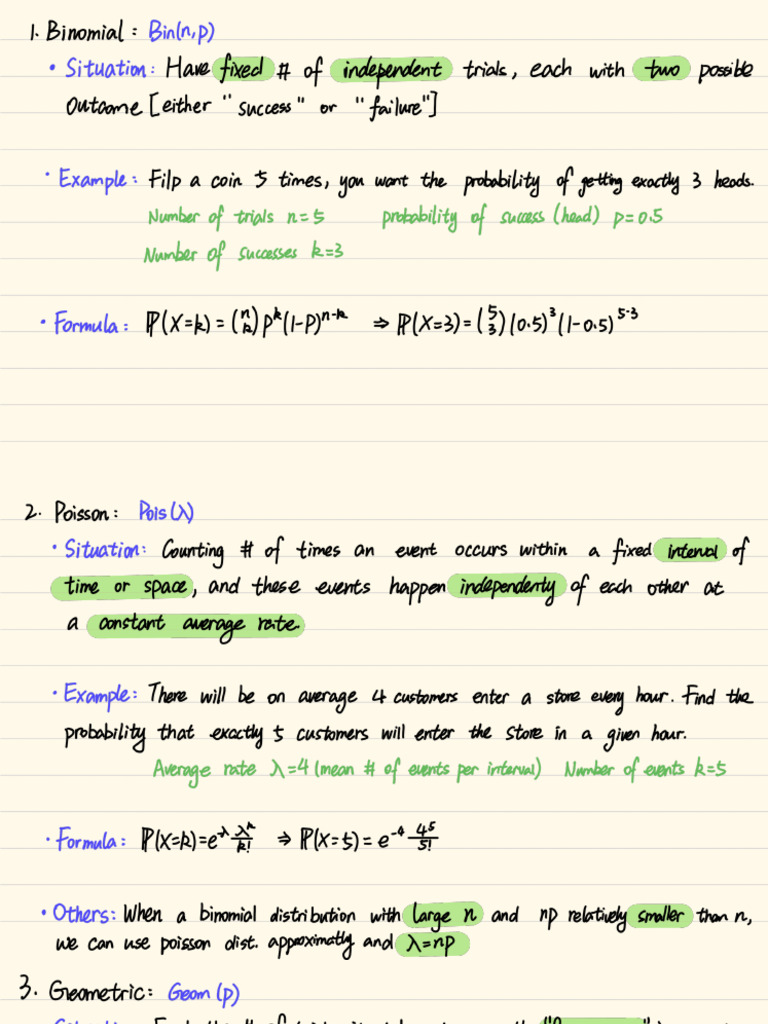 1. Binomial : Bin(n,p)
• Situation: Have fixed # of independent trials, each with two possible
outcome [either "success" or "failure"]
• Example: Filp a coin 5 times, you want the probability of getting exactly 3 heads.
Number of trials n=5 probability of success (head) p=0.5
Number of successes k=3
• Formula: ℙ(X=k) = (n k) p^k (1-p)^{n-k} ⇒ ℙ(X=3) = (5 3) (0.5)^3 (1-0.5)^{5-3}
2. Poisson: Pois(λ)
• Situation: Counting # of times an event occurs within a fixed interval of
time or space, and these events happen independenty of each other at
a constant average rate.
• Example: There will be on average 4 customers enter a store every hour. Find the
probability that exactly 5 customers will enter the store in a given hour.
Average rate λ=4 (mean # of events per interval) Number of events k=5
• Formula: ℙ(X=k) = e^{-λ} λ^k/k! ⇒ ℙ(X=5) = e^{-4} 4^5/5!
• Others: When a binomial distribution with large n and np relatively smaller than n,
we can use poisson dist. approximatly and λ=np
3. Geometric: Geom(p)